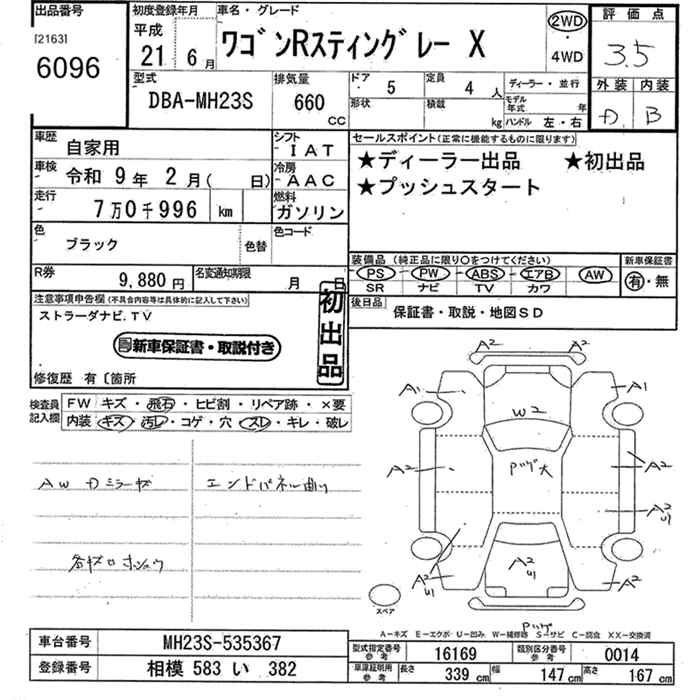 出品番号
[2163]
6096
初度登録年月
平成
21年 6月
車名・グレード
ワゴンRスティングレー X
2WD
・
4WD
評価点
3.5
外装 内装
D B
型式
DBA-MH23S
排気量
660
CC
ドア
5
定員
4人
形状
積載
kg
ディーラー・並行
モデル年式 年
ハンドル 左・右
車歴
自家用
シフト
IAT
車検
令和 9年 2月( 日)
冷房
AAC
走行
7万0千996 km
燃料
ガソリン
色
ブラック
色替
色コード
セールスポイント(正常に機能するものに限ります)
★ディーラー出品 ★初出品
★プッシュスタート
装備品(純正品に限り○をつけてください)
PS PW ABS エアB AW
SR ナビ TV カワ
新車保証書
有・無
R券
9,880円
名変通知期限
月 日
後日品
保証書・取説・地図SD
注意事項申告欄(不具合内容等は具体的に記入して下さい)
ストラーダナビ.TV
新車保証書・取説付き
初出品
修復歴 有〔箇所
検査員記入欄
FW キズ・飛石・ヒビ割・リペア跡・×要
内装 キズ・汚レ・コゲ・穴・スレ・キレ・破レ
AW Dミラーキズ
エンドパネル曲り
各キズロホシュウ
A2 A2
A1 A1
W2
A2 A2
Pツゲ大
A2
U1
A2
U1
A2
U1
A2
スペア
Pツゲ
A－キズ E－エクボ U－凹み W－補修跡 S－サビ C－腐食 XX－交換済
車台番号
MH23S-535367
登録番号
相模 583 い 382
型式指定番号
参考
16169
類別区分番号
参考
0014
車庫証明用
参考
長さ
339 cm
幅
147 cm
高さ
167 cm